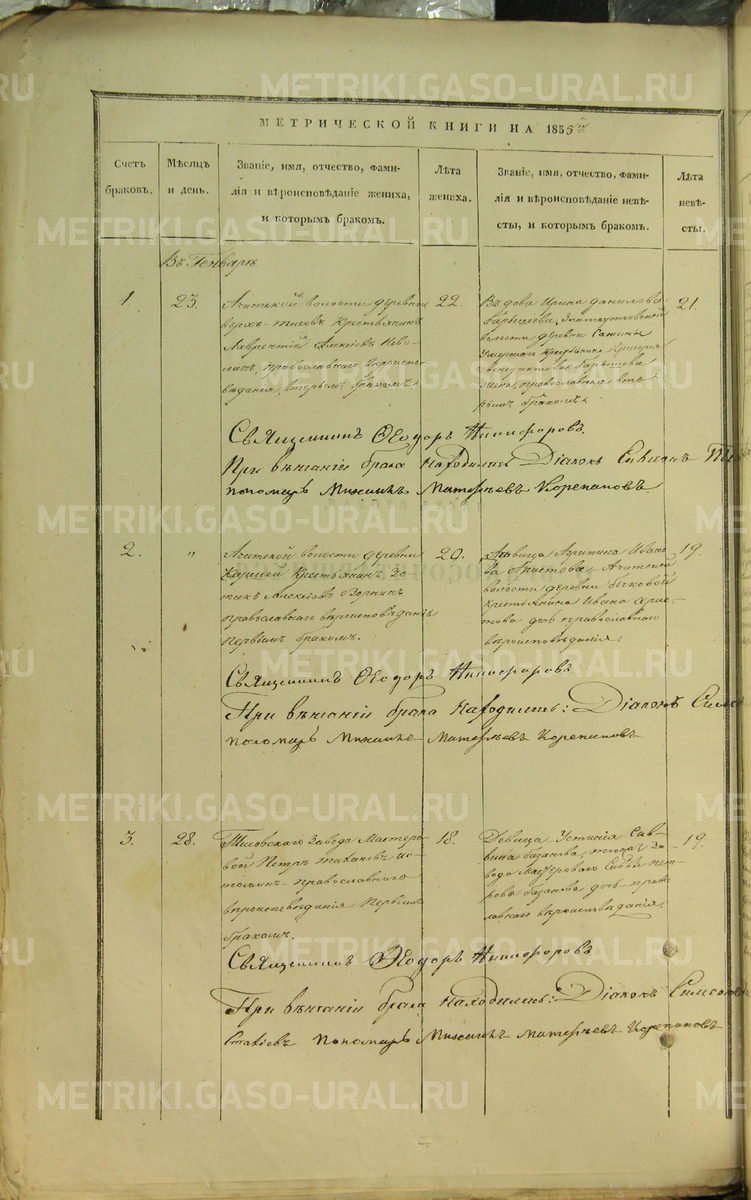 МЕТРИЧЕСКОЙ КНИГИ НА 1855
Счетъ браковъ.
Мѣсяцъ и день.
Званіе, имя, отчество, фами-
лія и вѣроисповѣданіе жениха,
и которымъ бракомъ.
Лѣта жениха.
Званіе, имя, отчество, фами-
лія и вѣроисповѣданіе невѣ-
сты, и которымъ бракомъ.
Лѣта невѣ-
сты.
Въ Генварѣ.
1
23.
Ачитской волости деревни
Крестьянинъ
Лаврентій Алексіевъ
православнаго вѣроиспо-
вѣданія, вторымъ бракомъ.
22.
Вдова Ирина Данилова
волости деревни
Григорія
православная вто-
рымъ бракомъ.
21.
Священникъ Ѳеодоръ Никифоровъ.
При вѣнчаніи брака находились Діаконъ
пономарь Михаилъ Матѳѣевъ Корепановъ
2.
"
Ачитской волости деревни
Крестьянинъ
Алексіевъ Озорнинъ
православнаго вѣроисповѣданія
Первымъ бракомъ.
20.
Дѣвица Агрипина Ивано-
ва Христова, Ачитской
волости деревни Быковой
крестьянина Ивана Хрис-
това дочь православнаго
вѣроисповѣданія.
19.
Священникъ Ѳеодоръ Никифоровъ
При вѣнчаніи брака находились: Діаконъ
пономарь Михаилъ Матѳѣевъ Корепановъ
3.
28.
Тисовскаго Завода Мастеро-
вой Петръ Тихановъ Ис-
томинъ православнаго
вѣроисповѣданія Первымъ
бракомъ.
18.
Девица Устинія Сав-
вина Базанова, тогоже За-
вода Мастероваго Саввы Пет-
рова Базанова дочь право-
славнаго вѣроисповѣданія.
19.
Священникъ Ѳеодоръ Никифоровъ
При вѣнчаніи брака находились: Діаконъ
Пономарь Михаилъ Матѳѣевъ Корепановъ
METRIKI.GASO-URAL.RU